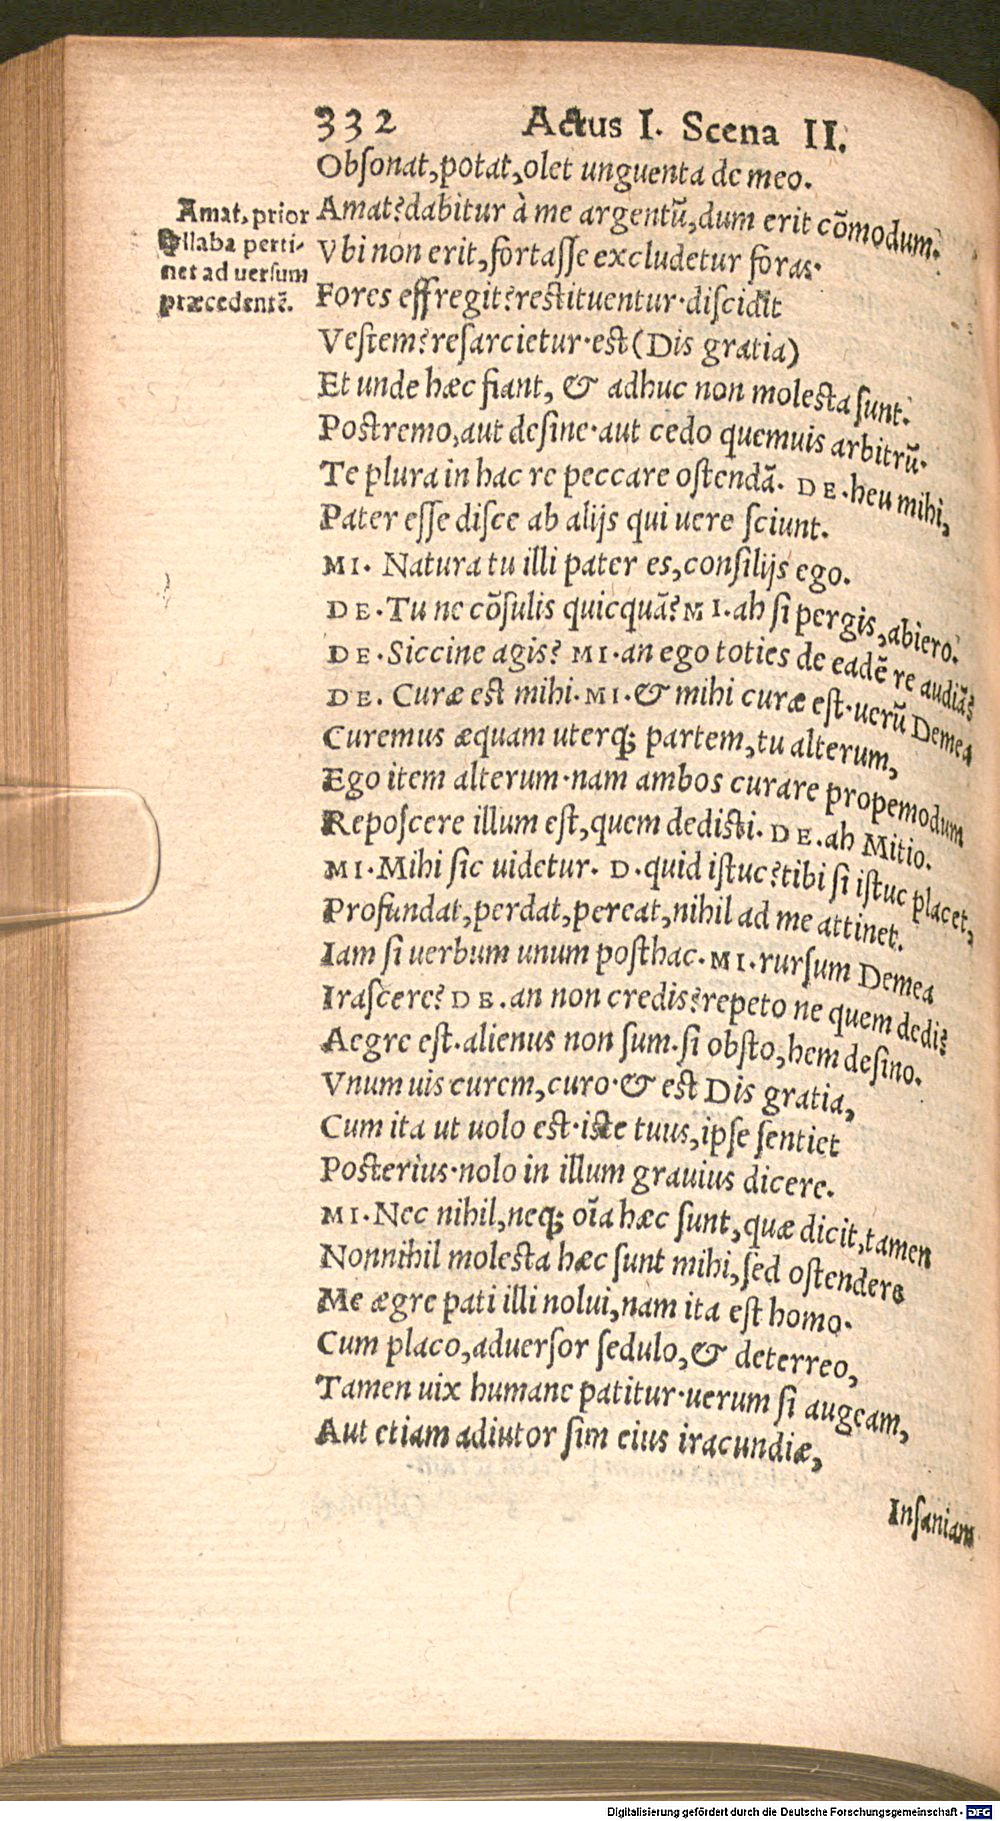 332 Actus I. Scena II.
Obſonat,potat,olet unguenta de meo.
Amat?dabitur à me argentũ,dum erit cõmodum.
Vbi non erit,fortaſſe excludetur foras.
Fores effregit?reſtituentur.diſcidit
Veſtem?reſarcietur.eſt(Dis gratia)
Et unde hæc fiant, & adhuc non moleſta ſunt.
Poſtremo,aut deſine.aut cedo quemuis arbitrũ.
Te plura in hac re peccare oſtendã. DE.heu mihi,
Pater eſſe diſce ab alijs qui uere ſciunt.
MI. Natura tu illi pater es,conſilijs ego.
DE.Tu ne cõſulis quicquã?MI.ah ſi pergis,abiero.
DE.Siccine agis? MI.an ego toties de eadẽ re audiã?
DE. Curæ eſt mihi.MI.& mihi curæ eſt.uerũ Demea
Curemus æquam uterq; partem,tu alterum,
Ego item alterum.nam ambos curare propemodum
Repoſcere illum eſt,quem dediſti. DE.ah Mitio.
MI.Mihi ſic uidetur. D.quid iſtuc?tibi ſi iſtuc placet,
Profundat,perdat,pereat,nihil ad me attinet.
Iam ſi uerbum unum poſthac.MI.rurſum Demea
Iraſcere? DE.an non credis?repeto ne quem dedi?
Aegre eſt.alienus non ſum.ſi obſto,hem deſino.
Vnum uis curem,curo.& eſt Dis gratia,
Cum ita ut uolo eſt.iſte tuus,ipſe ſentiet
Poſterius.nolo in illum grauius dicere.
MI.Nec nihil,neq; oĩa hæc ſunt,quæ dicit,tamen
Nonnihil moleſta hæc ſunt mihi,ſed oſtendere
Me ægre pati illi nolui,nam ita eſt homo.
Cum placo,aduerſor ſedulo,& deterreo,
Tamen uix humane patitur.uerum ſi augeam,
Aut etiam adiutor ſim eius iracundiæ,
Inſaniam
Amat, prior
ſyllaba perti-
net ad uerſum
præcedentẽ.
Digitalisierung gefördert durch die Deutsche Forschungsgemeinschaft - DFG